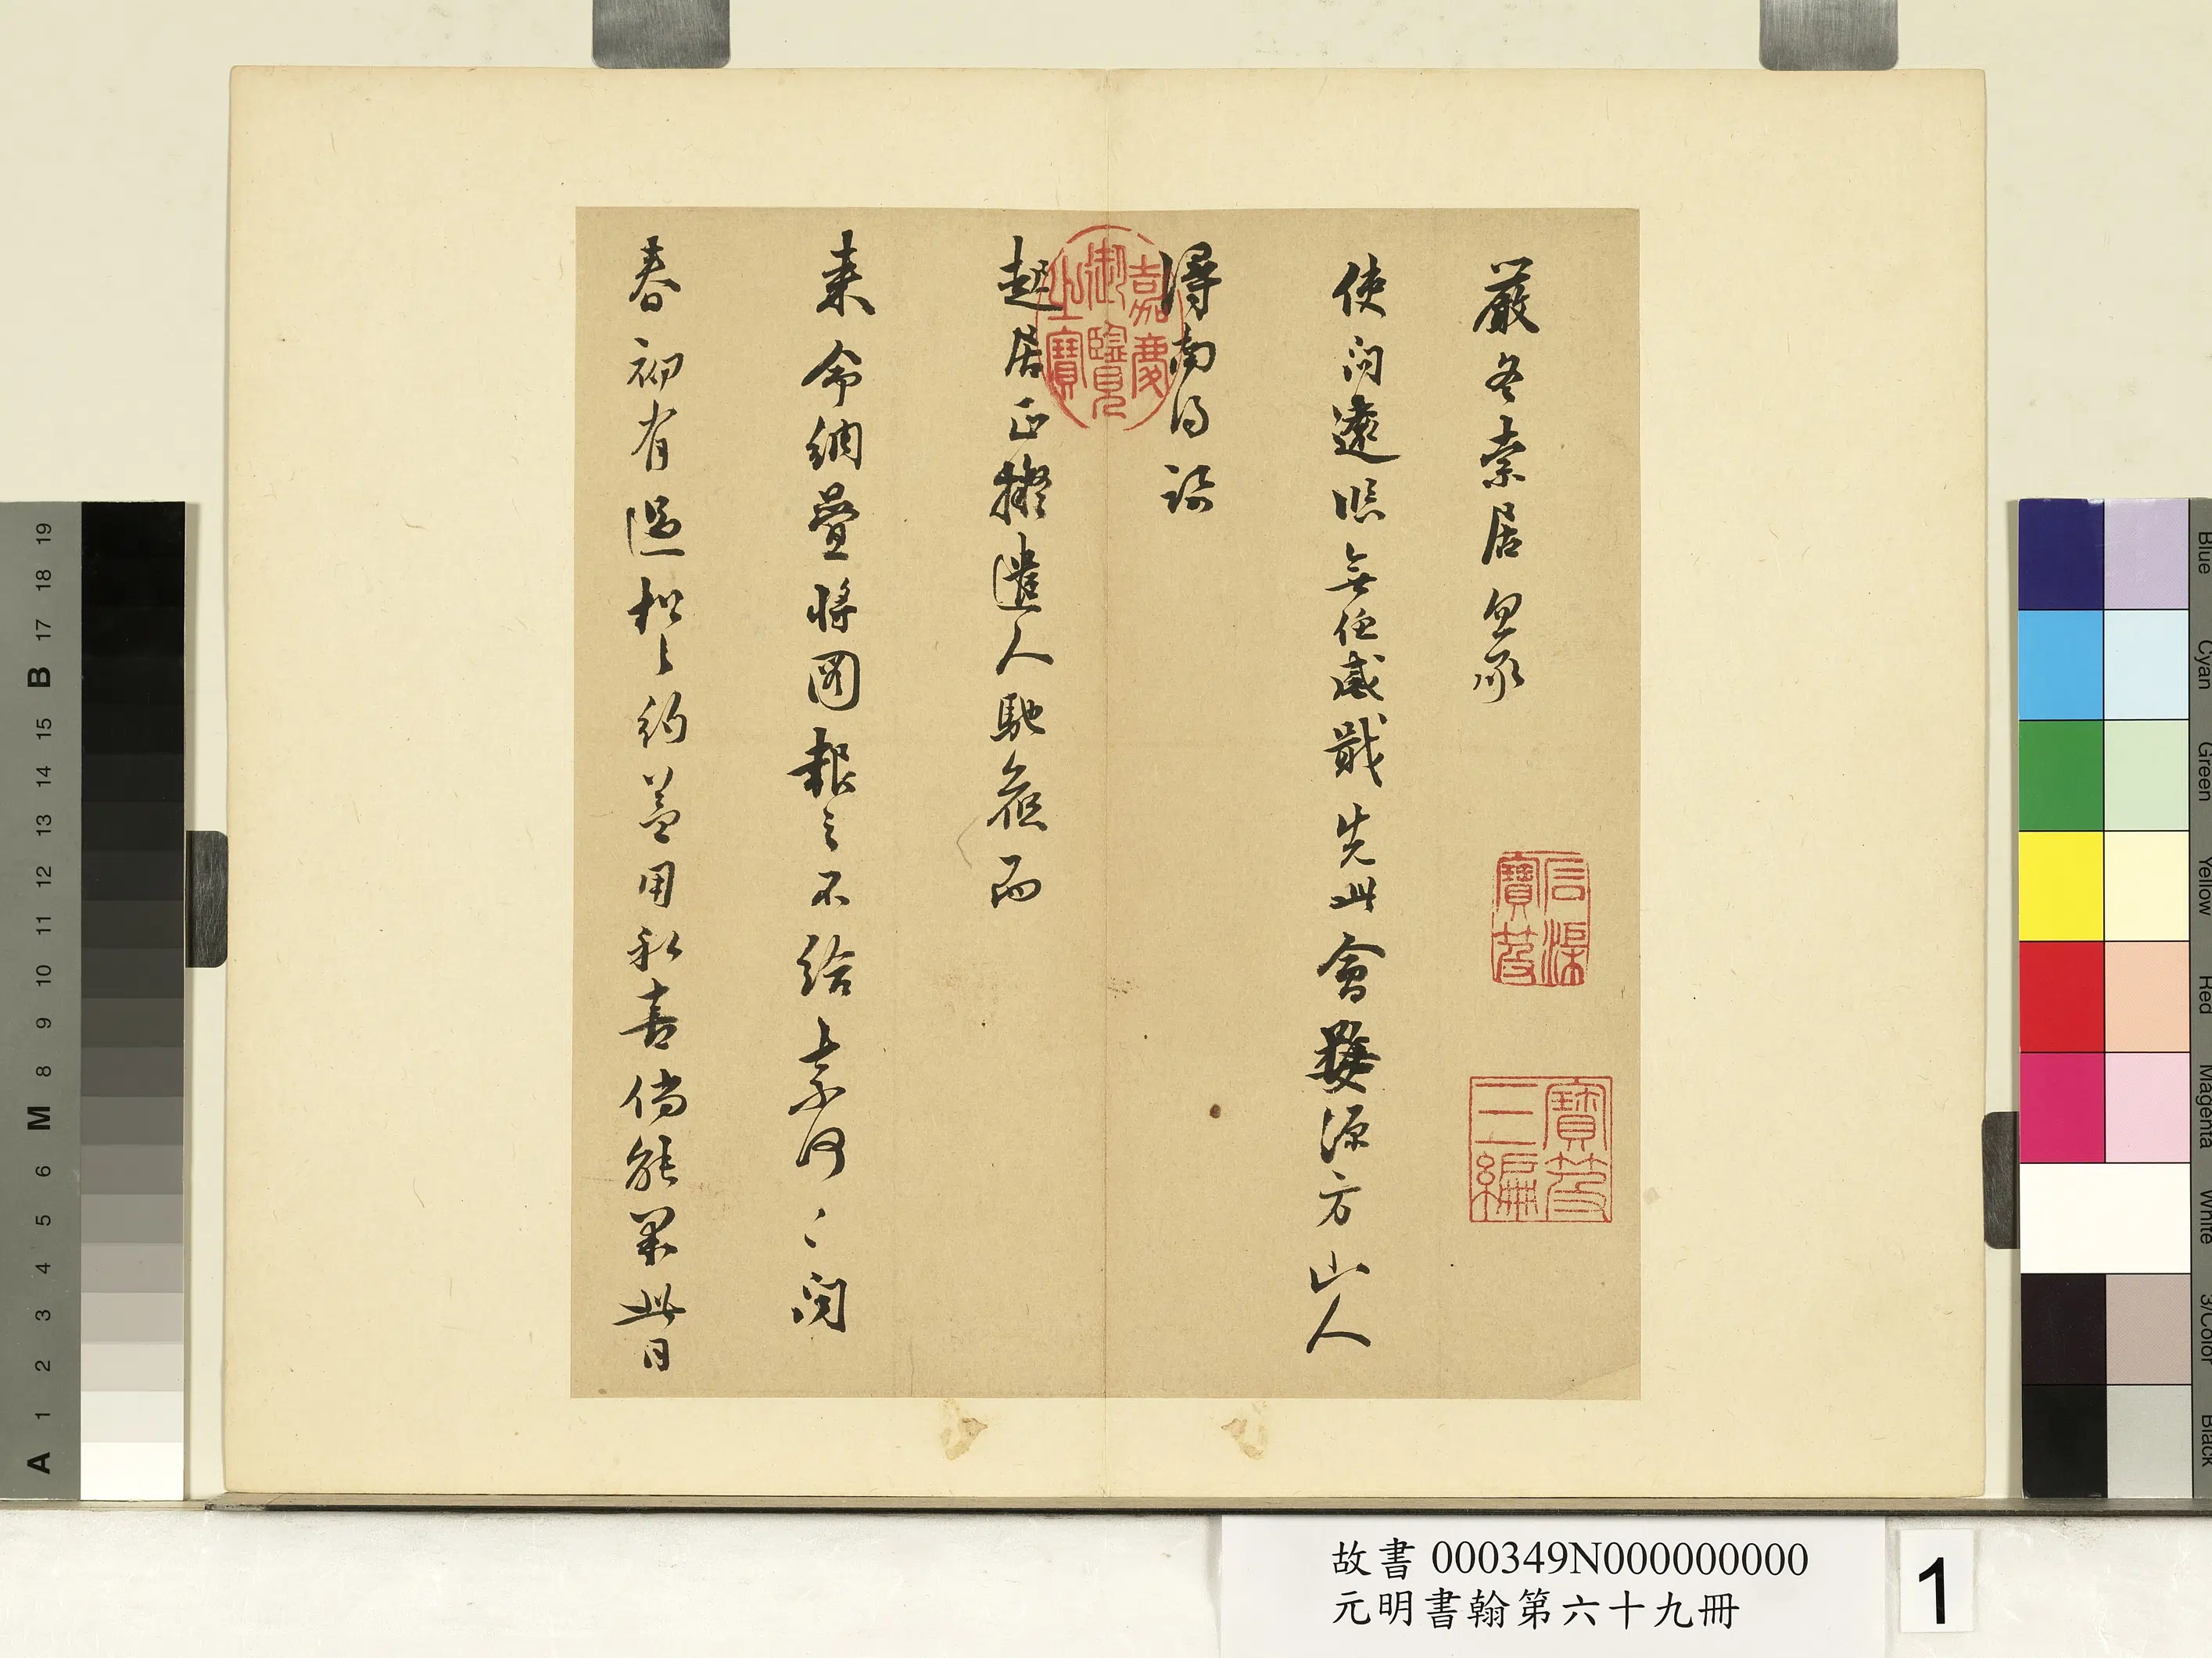 嚴冬索居忽承
使問遠貺無任感戢先此會婺源方山人
潯南得詢
起居正擬遣人馳候而
來命綢疊將圖報之不給奈何〻聞
春初有過松之約益用私喜倘能果此昔日
嘉慶御覽之寶
石渠寶笈
寶笈三編
故書 000349N000000000
元明書翰第六十九冊
1
19
18
17
B
16
15
14
13
12
11
10
9
8
M
7
6
5
4
3
2
1
A
Blue
Cyan
Green
Yellow
Red
Magenta
White
3/Color
Black